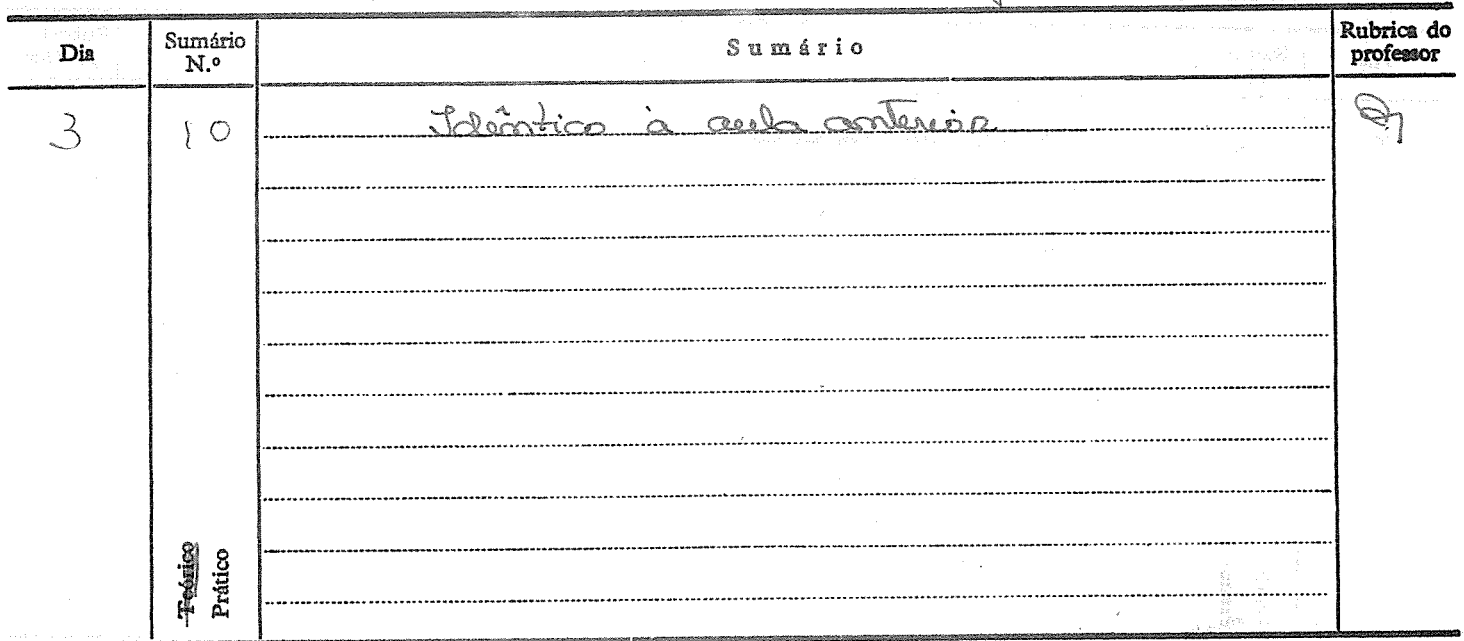 Dia
Sumário N.º
Sumário
Rubrica do professor
3
10
Idêntico à aula anterior
Teórico
Prático